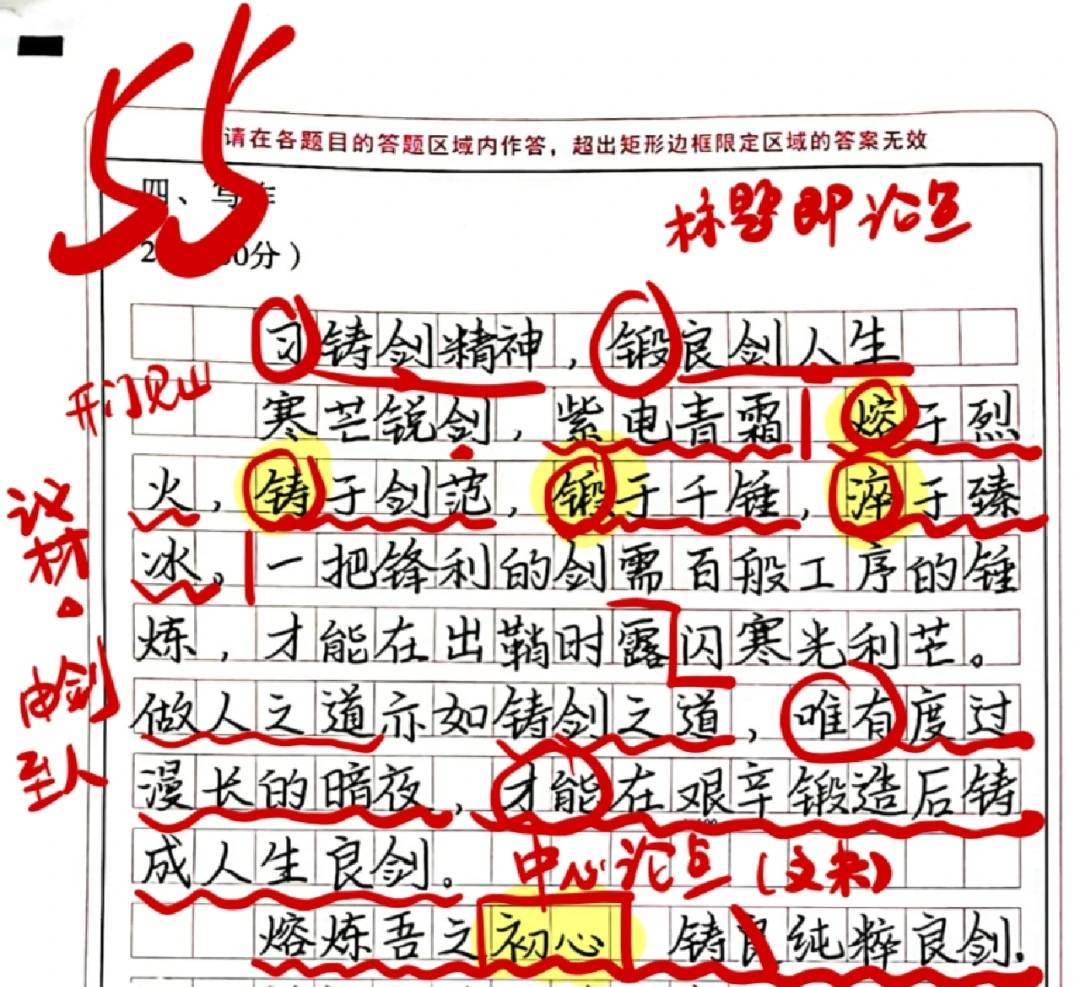 55
请在各题目的答题区域内作答，超出矩形边框限定区域的答案无效
四、写作
0分）
标题即论点
习铸剑精神，锻良剑人生
开门见山
寒芒锐剑，紫电青霜，熔于烈
火，铸于剑范，锻于千锤，淬于臻
冰。一把锋利的剑需百般工序的锤
炼，才能在出鞘时露闪寒光利芒。
议材
由剑
至人
做人之道亦如铸剑之道，唯有度过
漫长的暗夜，才能在艰辛锻造后铸
成人生良剑。
中心论点（文采）
熔炼吾之初心 铸良纯粹良剑.